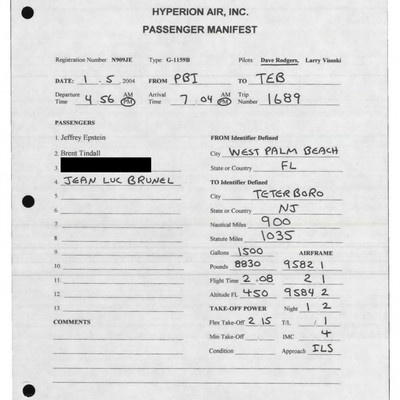 HYPERION AIR, INC.
PASSENGER MANIFEST
Registration Number N909JE Type G-1159B Pilots Dave Rodgers, Larry Visoski
DATE: 1 . 5 . 2004 FROM PBI TO TEB
Departure Time 4 56 AM PM Arrival Time 7 04 AM PM Trip Number 1689
PASSENGERS
1. Jeffrey Epstein FROM Identifier Defined
2. Brent Tindall City WEST PALM BEACH
3. State or Country FL
4. JEAN LUC BRUNEL TO Identifier Defined
5. City TETERBORO
6. State or Country NJ
7. Nautical Miles 900
8. Statute Miles 1035
9. Gallons 1500 AIRFRAME
10. Pounds 8830 9582 1
11. Flight Time 2 . 08 2 1
12. Altitude FL 450 9584 2
13. TAKE-OFF POWER Night 1 2
COMMENTS Flex Take-Off 2 15 T/L / 1
Min Take-Off IMC 4
Condition Approach ILS